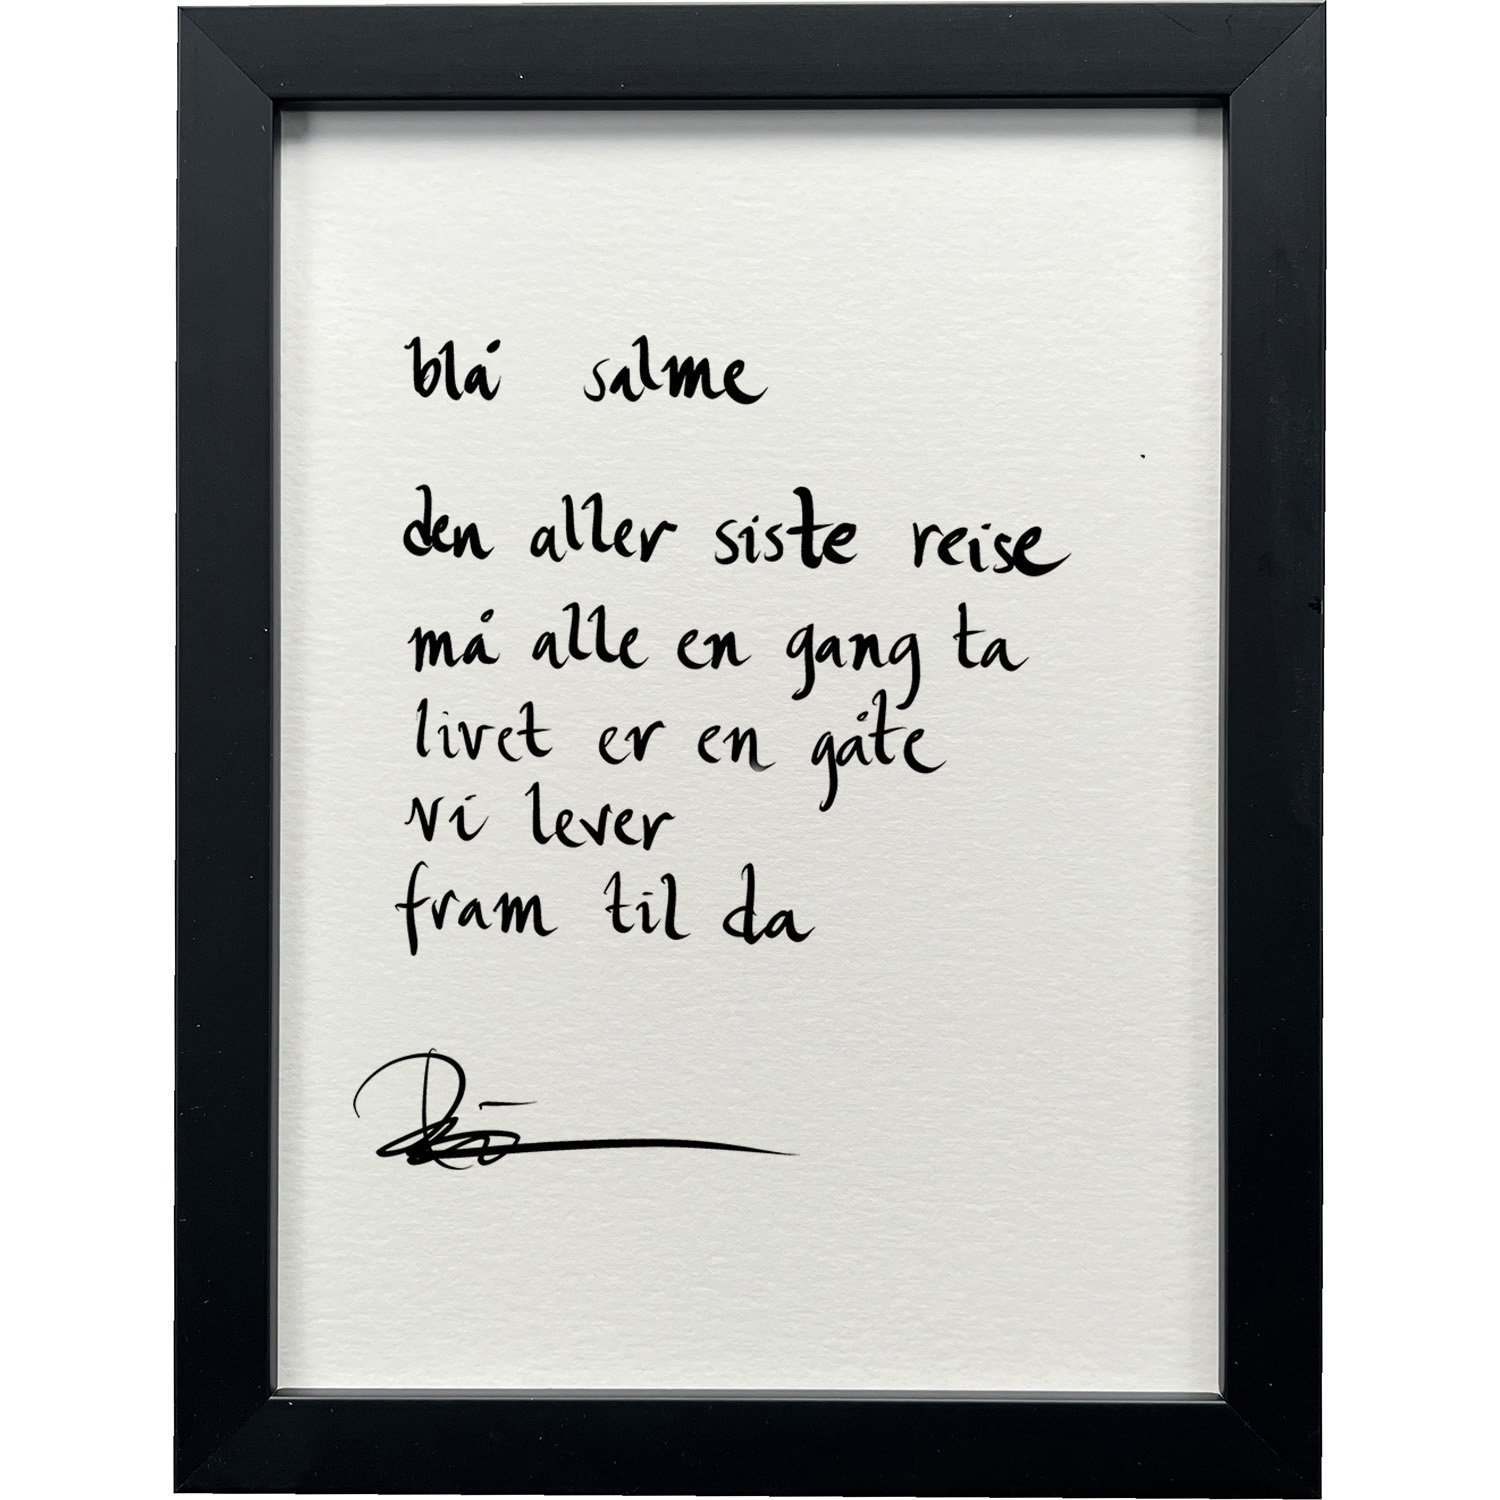 blå salme
den aller siste reise
må alle en gang ta
livet er en gåte
vi lever
fram til da